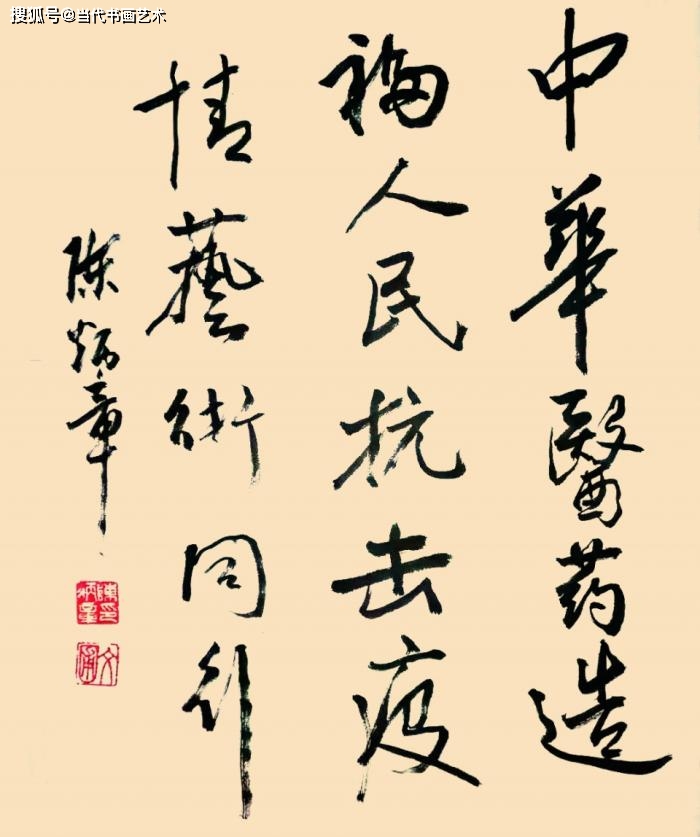 搜狐号@当代书画艺术
中華醫药造
福人民抗击疫
情藝術同行
陈炳章
陳印炳章